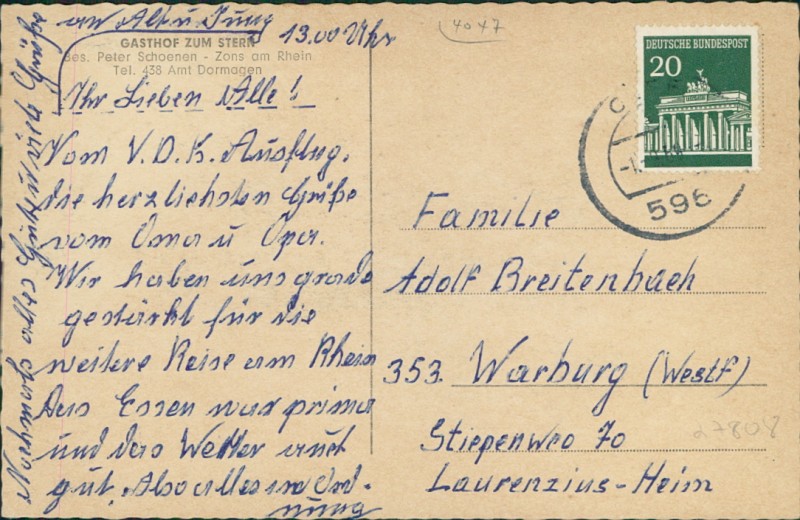 an Alt u. Jung
13.00 Uhr
4047
GASTHOF ZUM STERN
Bes. Peter Schoenen - Zons am Rhein
Tel. 438 Amt Dormagen
Ihr Lieben Alle!
Vom V.D.K. Ausflug.
die herzlichsten Grüße
vom Oma u Opa.
Wir haben uns grade
gestärkt für die
weitere Reise am Rhein
Das Essen war prima
und das Wetter auch
gut. Also alles in Ord-
nung
Nochmals alles Gute u viele Grüße
DEUTSCHE BUNDESPOST
20
596
Familie
Adolf Breitenbach
353. Warburg (Westf)
Stiepenweg 70
Laurenzius-Heim
27808